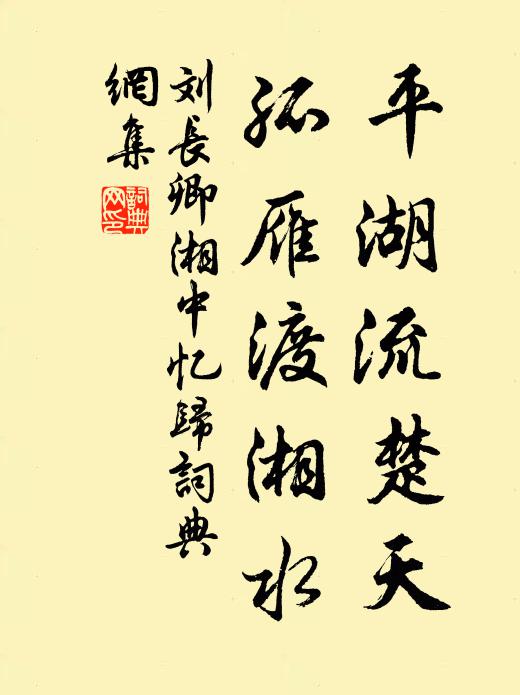 平湖流楚天
孤雁渡湘水
刘長卿湘中忆歸詞典
網集
詞典
网印